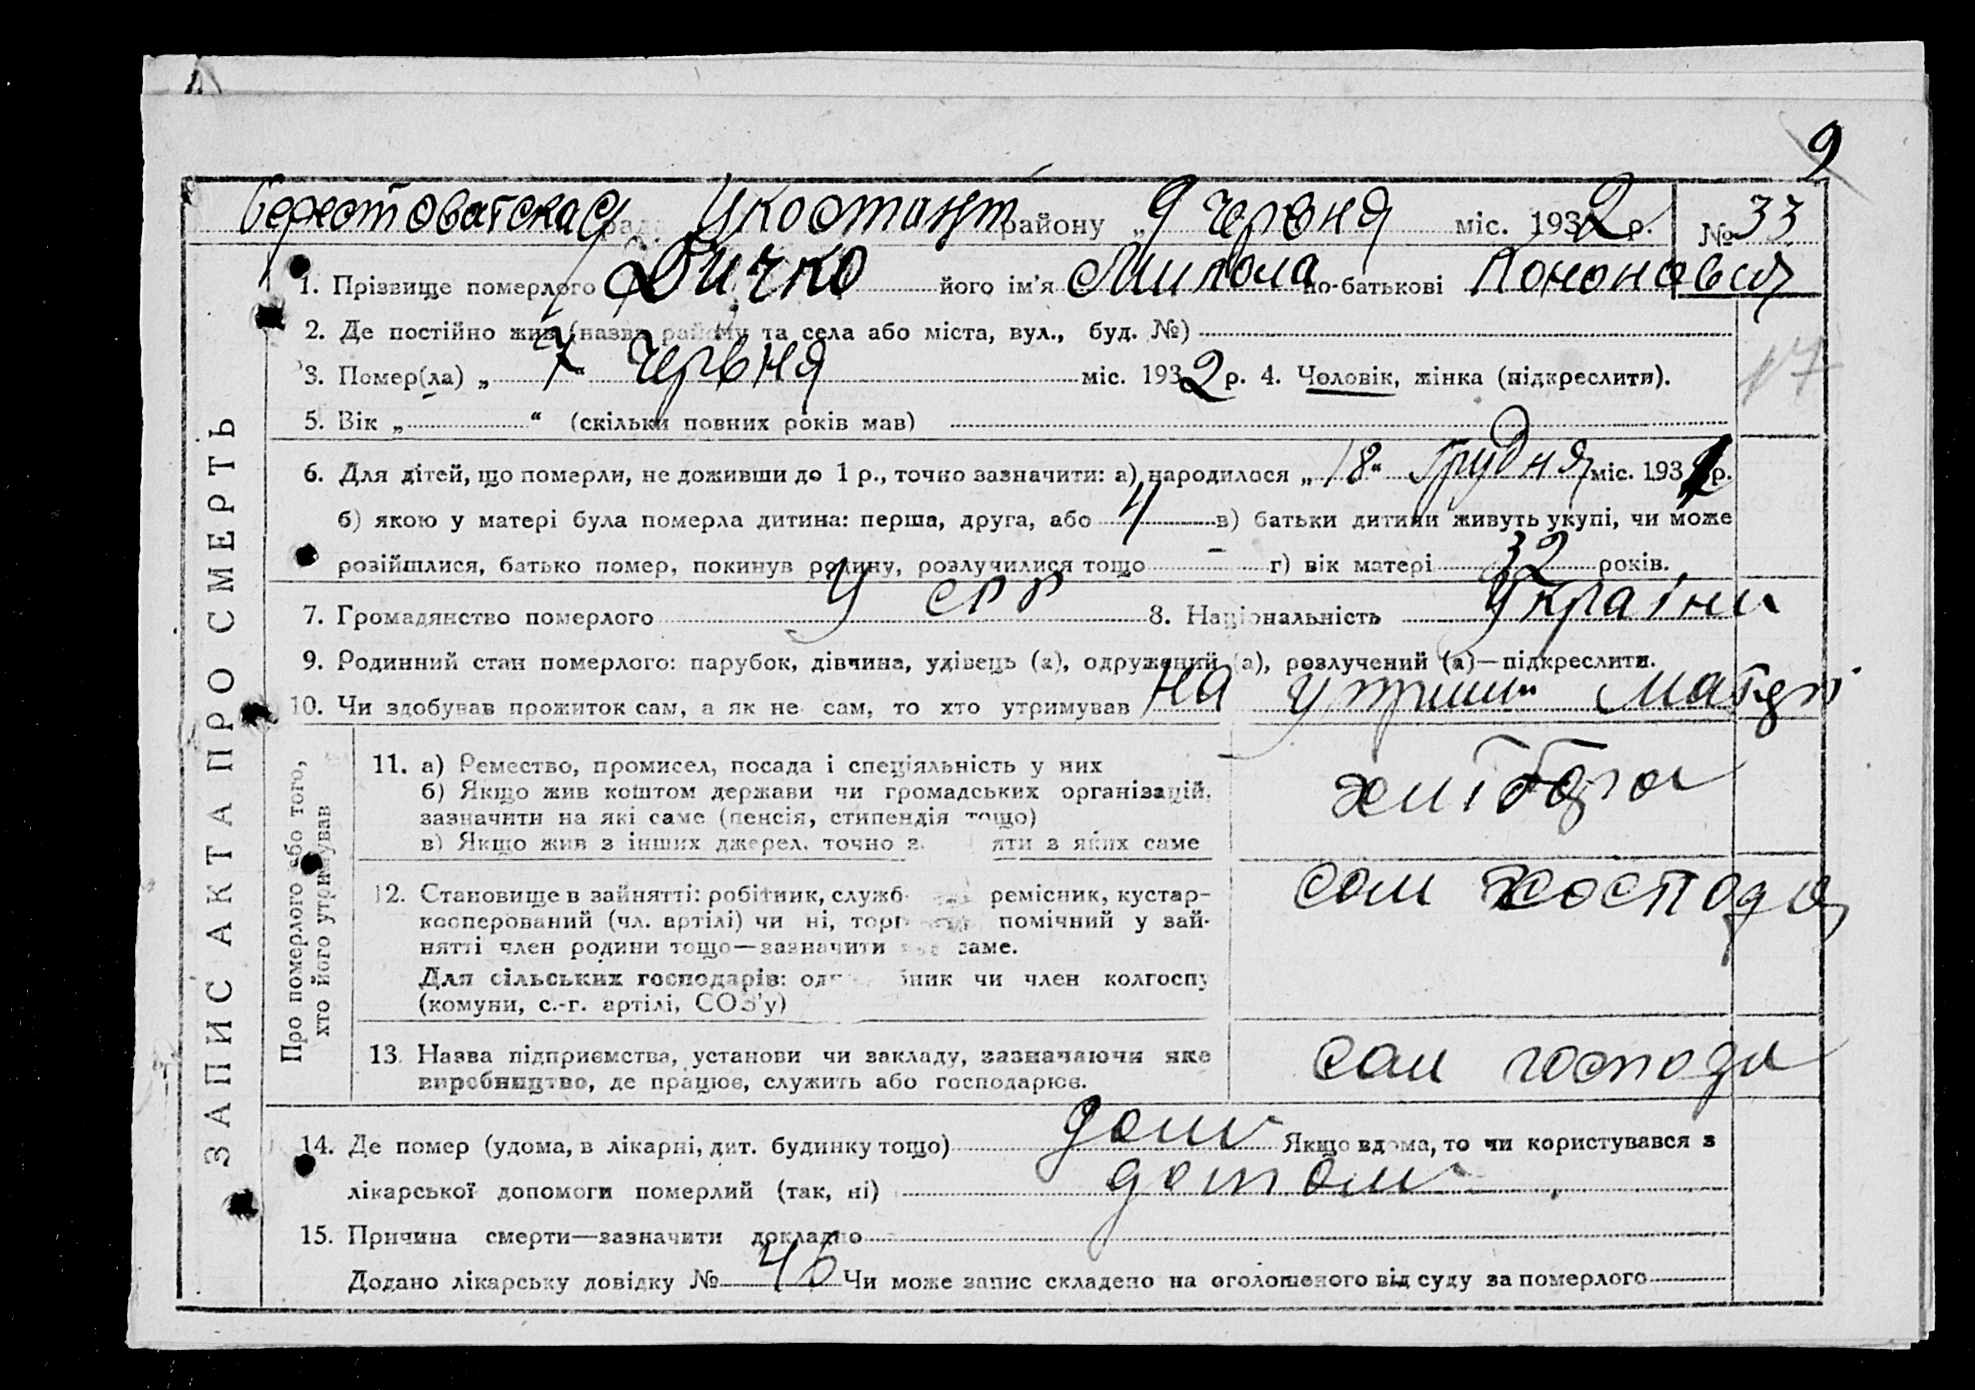 9
Берестоватская рада района „9 червня міс. 1932 р. № 33
1. Прізвище померлого Дичко його ім'я Микола по-батькові Кононович
2. Де постійно жив (назва району та села або міста, вул., буд. №)
17
3. Помер(ла) „7“ червня міс. 1932 р. 4. Чоловік, жінка (підкреслити).
5. Вік „ “ (скільки повних років мав)
6. Для дітей, що померли, не доживши до 1 р., точно зазначити: а) народилося „18“ грудня міс. 1931 р.
б) якою у матері була померла дитина: перша, друга, або 4 в) батьки дитини живуть укупі, чи може
розійшлися, батько помер, покинув родину, розлучилися тощо – г) вік матері 32 років.
7. Громадянство померлого У СРР 8. Національність Україн
9. Родинний стан померлого: парубок, дівчина, удівець (а), одружений (а), розлучений (а)—підкреслити.
10. Чи здобував прожиток сам, а як не сам, то хто утримував На утрим матері
ЗАПИС АКТА ПРО СМЕРТЬ
Про померлого або того,
хто його утримував
11. а) Ремество, промисел, посада і спеціяльність у них
б) Якщо жив коштом держави чи громадських організацій,
зазначити на які саме (пенсія, стипендія тощо)
в) Якщо жив з інших джерел, точно з яти з яких саме
хлібороб
12. Становище в зайнятті: робітник, служб ремісник, кустар-
кооперований (чл. артілі) чи ні, торг помічний у зай-
нятті член родини тощо—зазначити саме.
Для сільських господарів: од бник чи член колгоспу
(комуни, с.-г. артілі, СОЗ'у)
сам господар
13. Назва підприємства, установи чи закладу, зазначаючи яке
виробництво, де працює, служить або господарює.
сам господа
14. Де помер (удома, в лікарні, дит. будинку тощо) дома Якщо вдома, то чи користувався з
лікарської допомоги померлий (так, ні)
15. Причина смерти—зазначити докладно
Додано лікарську довідку № 46 Чи може запис складено на оголошеного від суду за померлого